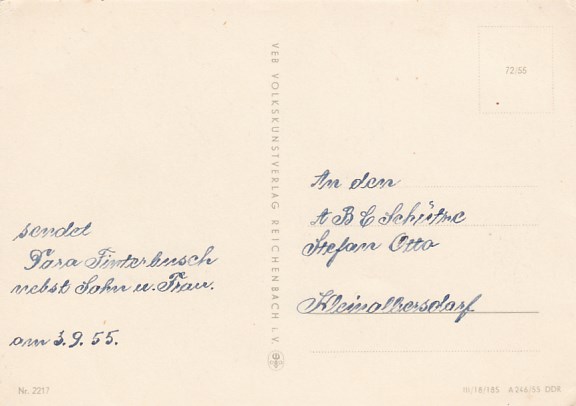 sendet
Finterbusch
nebst Sohn u. Frau.
am 3.9.55.
VEB VOLKSKUNSTVERLAG REICHENBACH I. V.
72/55
An den
A B C Schütze
Stefan Otto
Kleinolbersdorf
Nr. 2217
III/18/185 A 246/55 DDR